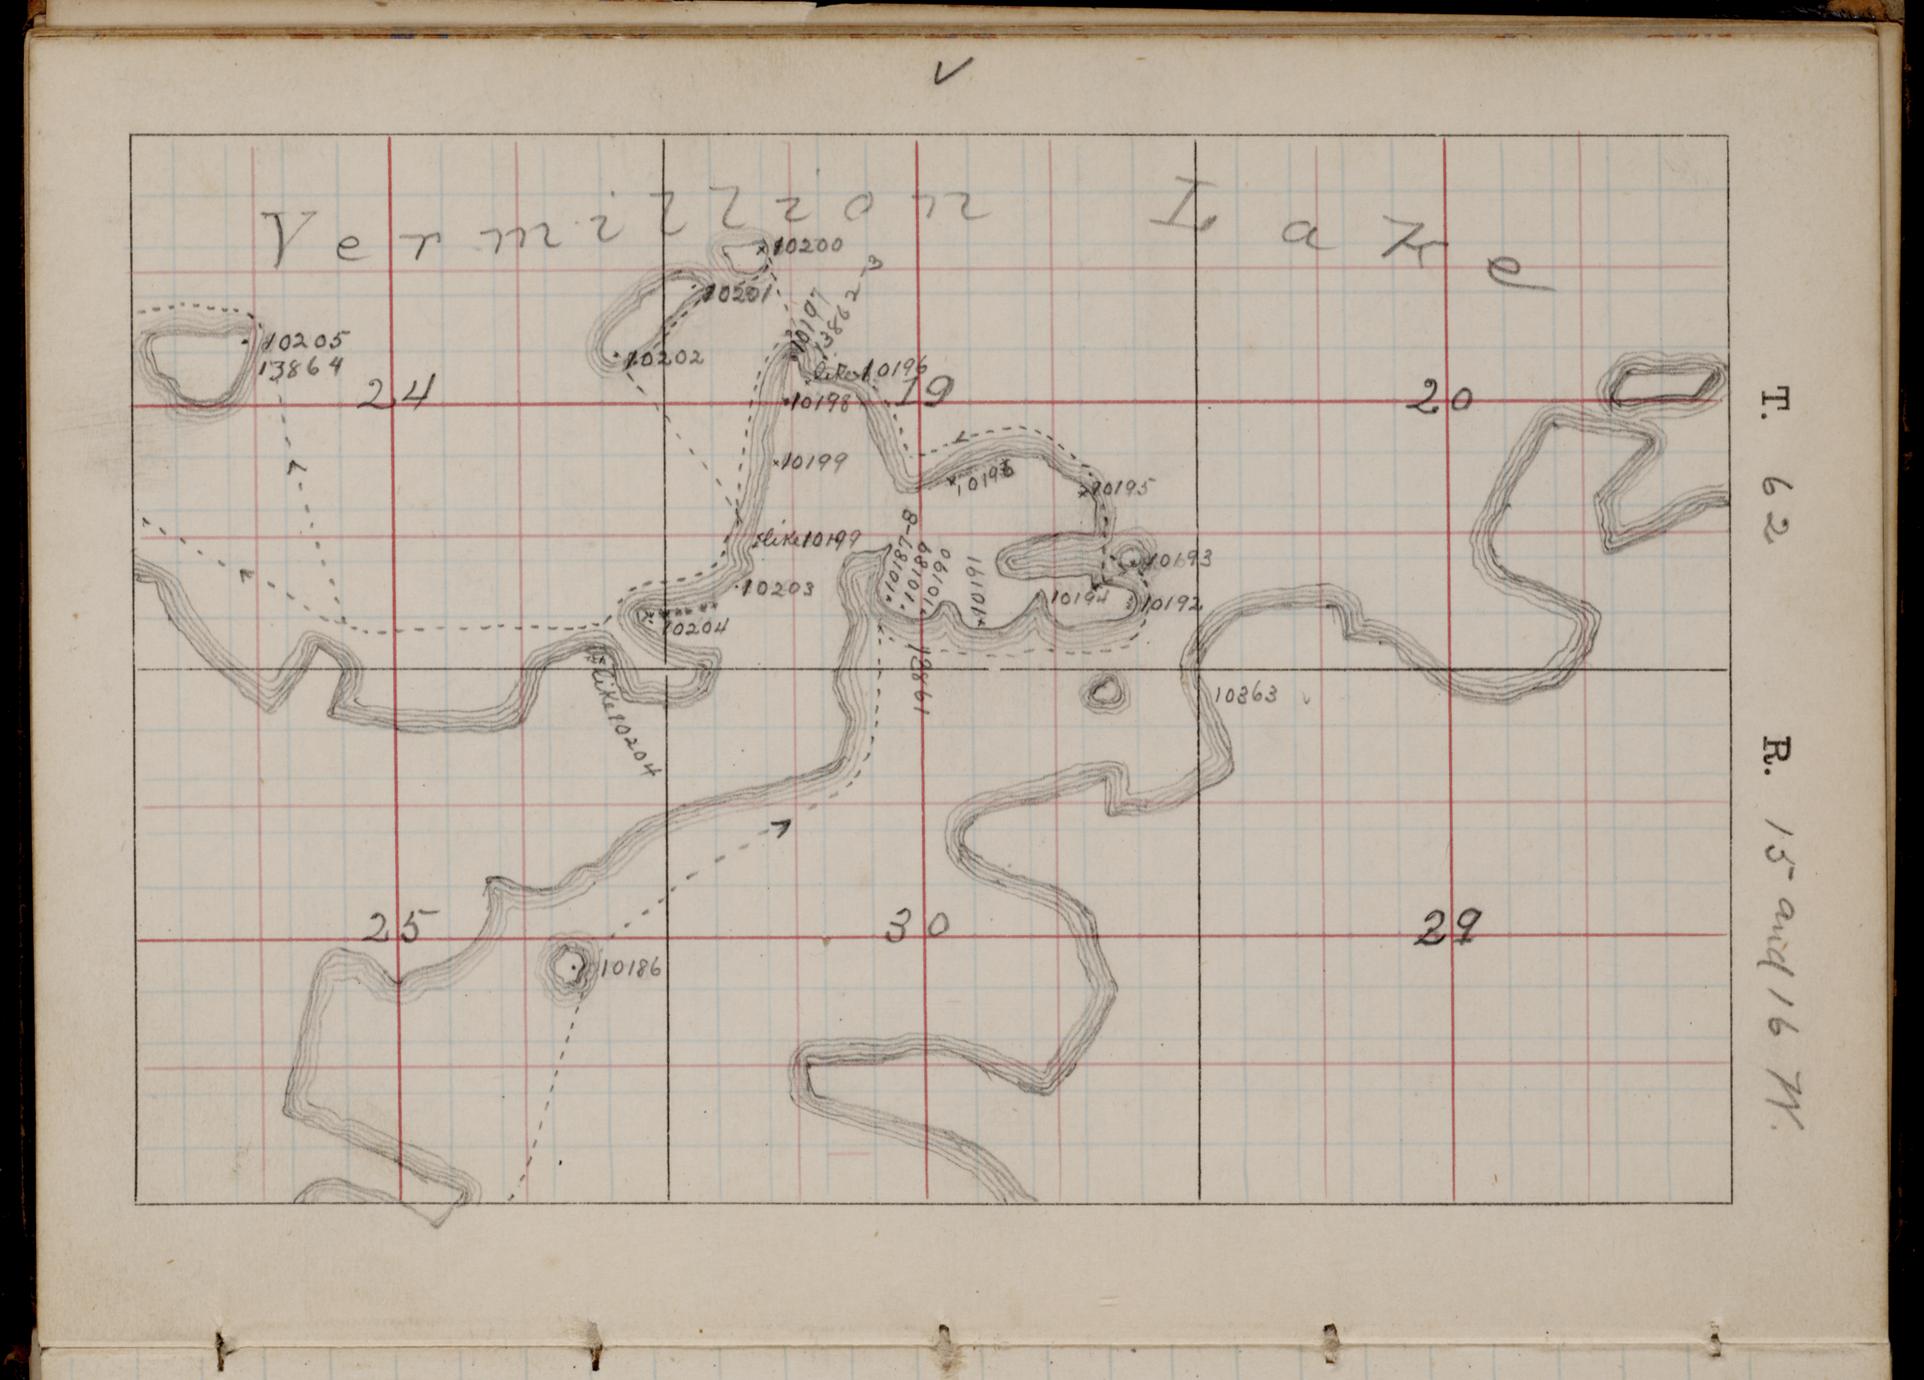 Vermillion Lake
10200
10201
10197
13862-3
10202
10205
13864
like 10196
24
19
20
10198
10199
10196
10195
like 10199
10187-8
10189
10190
10191
10193
10203
10194
10192
10204
13861
like 10204
10363
25
30
29
10186
T. 62 R. 15 and 16 W.